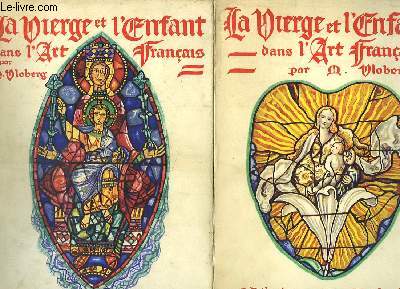 La Vierge et l'Enfant
dans l'Art Français
par
M. Vloberg
La Vierge et l'Enfa
dans l'Art Françai
par M. Vloberg